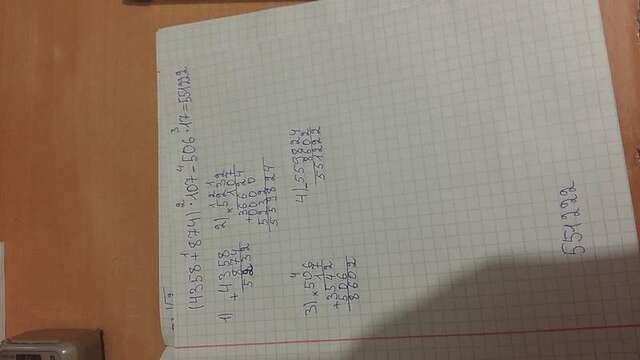 (4358+874)·107-506·17=551222
1) 4358
+ 874
5232
2) 5232
× 107
36624
+0000
5232
559824
3) 506
× 17
+3542
506
8602
4) -559824
8602
551222
551222